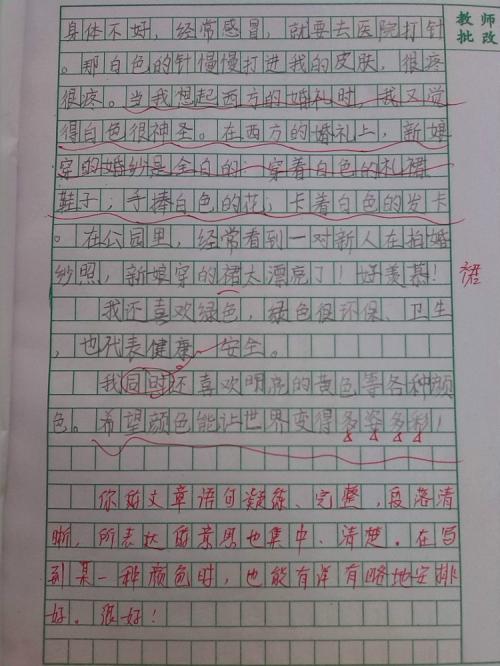 教师
批改
身体不好，经常感冒，就要去医院打针
。那白色的针慢慢打进我的皮肤，很疼
很疼。当我想起西方的婚礼时，我又觉
得白色很神圣。在西方的婚礼上，新娘
穿的婚纱是全白的；穿着白色的礼裙
鞋子；手捧白色的花；卡着白色的发卡
。在公园里，经常看到一对新人在拍婚
纱照，新娘穿的裙太漂亮了！好羡慕！
裙
我还喜欢绿色，绿色很环保、卫生
，也代表健康、安全。
我同时还喜欢明亮的黄色等各种颜
色。希望颜色能让世界变得多姿多彩！
你的文章语句凝练、完整，段落清
晰，所表达的意思也集中、清楚。在写
到某一种颜色时，也能有详有略地安排
好。很好！